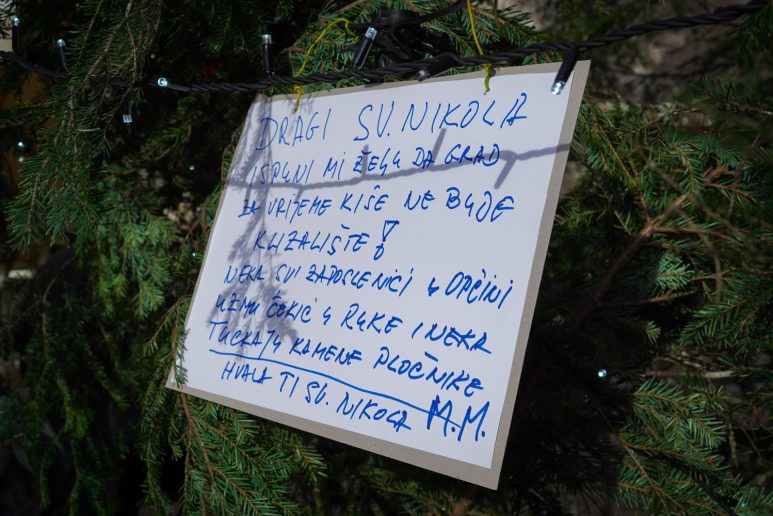 DRAGI SV. NIKOLA
ISPUNI MI ŽELJU DA GRAD
ZA VRIJEME KIŠE NE BUDE
KLIZALIŠTE!
NEKA SVI ZAPOSLENICI U OPĆINI
UZMU ČOKIĆ U RUKE I NEKA
TUCKAJU KAMENE PLOČNIKE
HVALA TI SV. NIKOLA M.M.